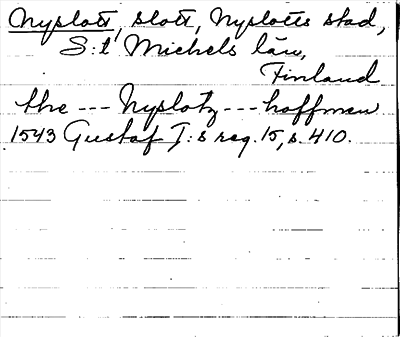 Nyslott, slott, Nyslotts stad,
S:t Michels län,
Finland
the --- Nyslotz --- hoffmen
1543 Gustaf I:s reg. 15, s. 410.